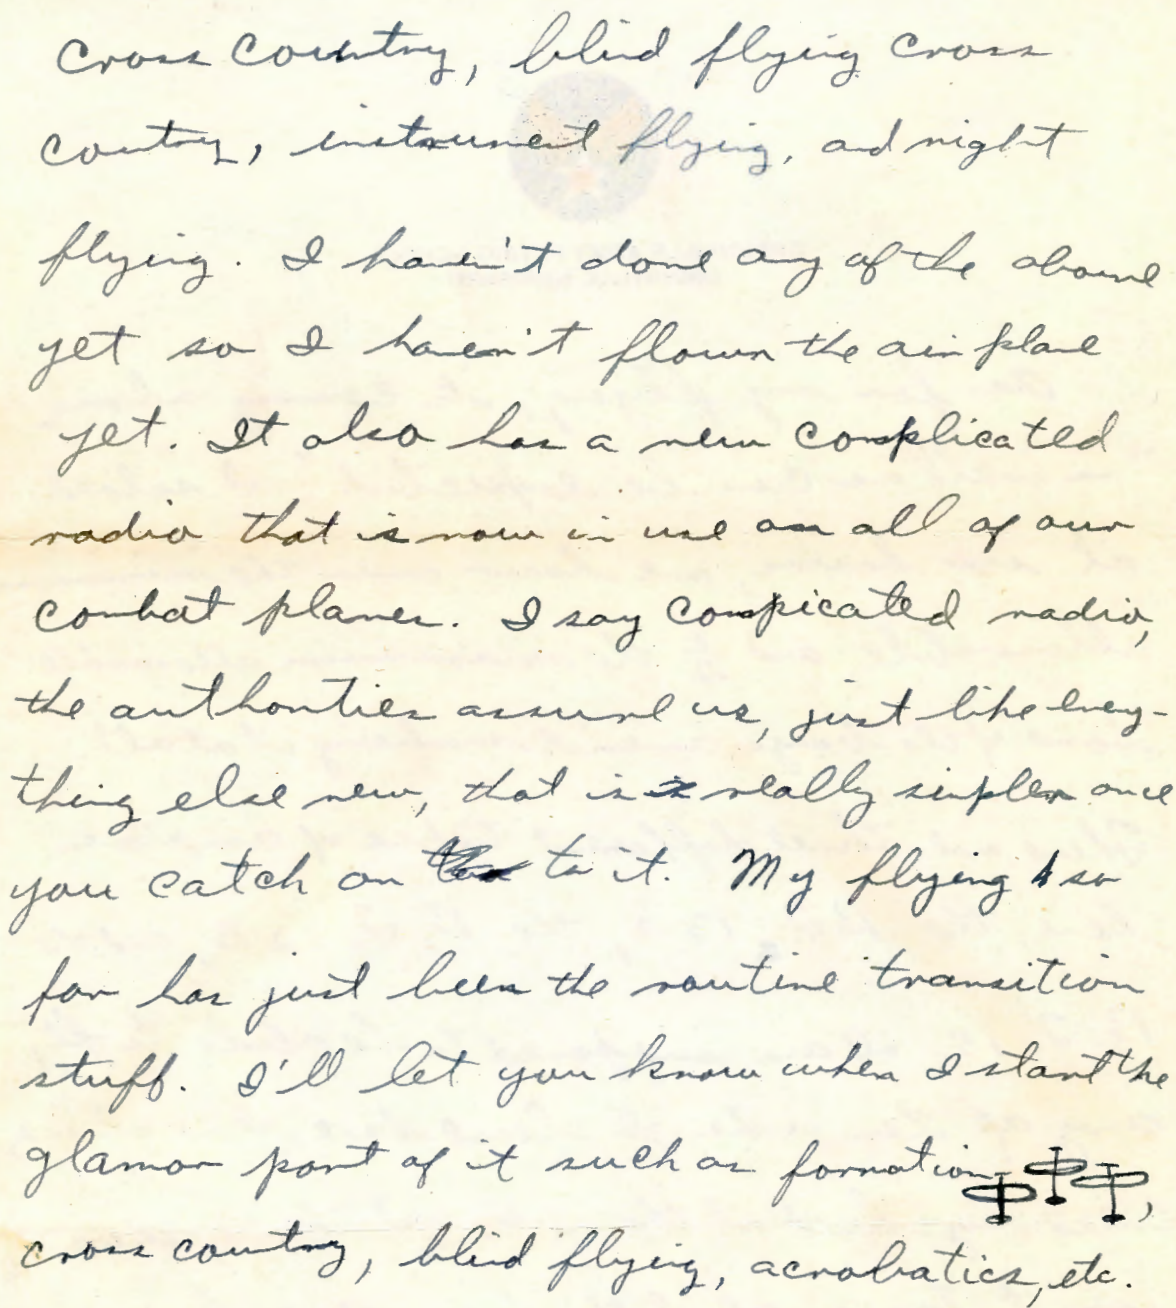 cross country, blind flying cross
country, instrument flying, and night
flying. I haven't done any of the above
yet so I haven't flown the airplane
yet. It also has a new complicated
radio that is now in use on all of our
combat planes. I say compicated radio,
the authorities assure us, just like every-
thing else new, that is really simple once
you catch on to it. My flying so
far has just been the routine transition
stuff. I'll let you know when I start the
glamor part of it such as formation,
cross country, blind flying, acrobatics, etc.